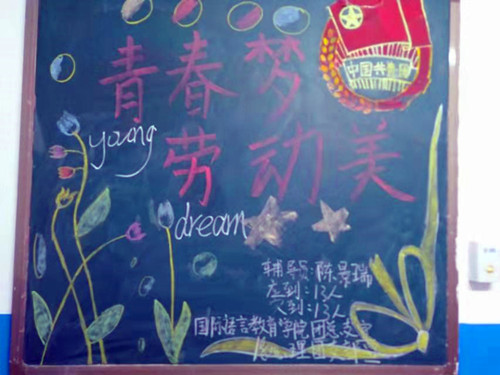 青春梦
中国共青团
young
劳动美
dream
辅导员:陈景瑞
应到:13人
实到:13人
国际语言教育学院团总支宣
理团支部